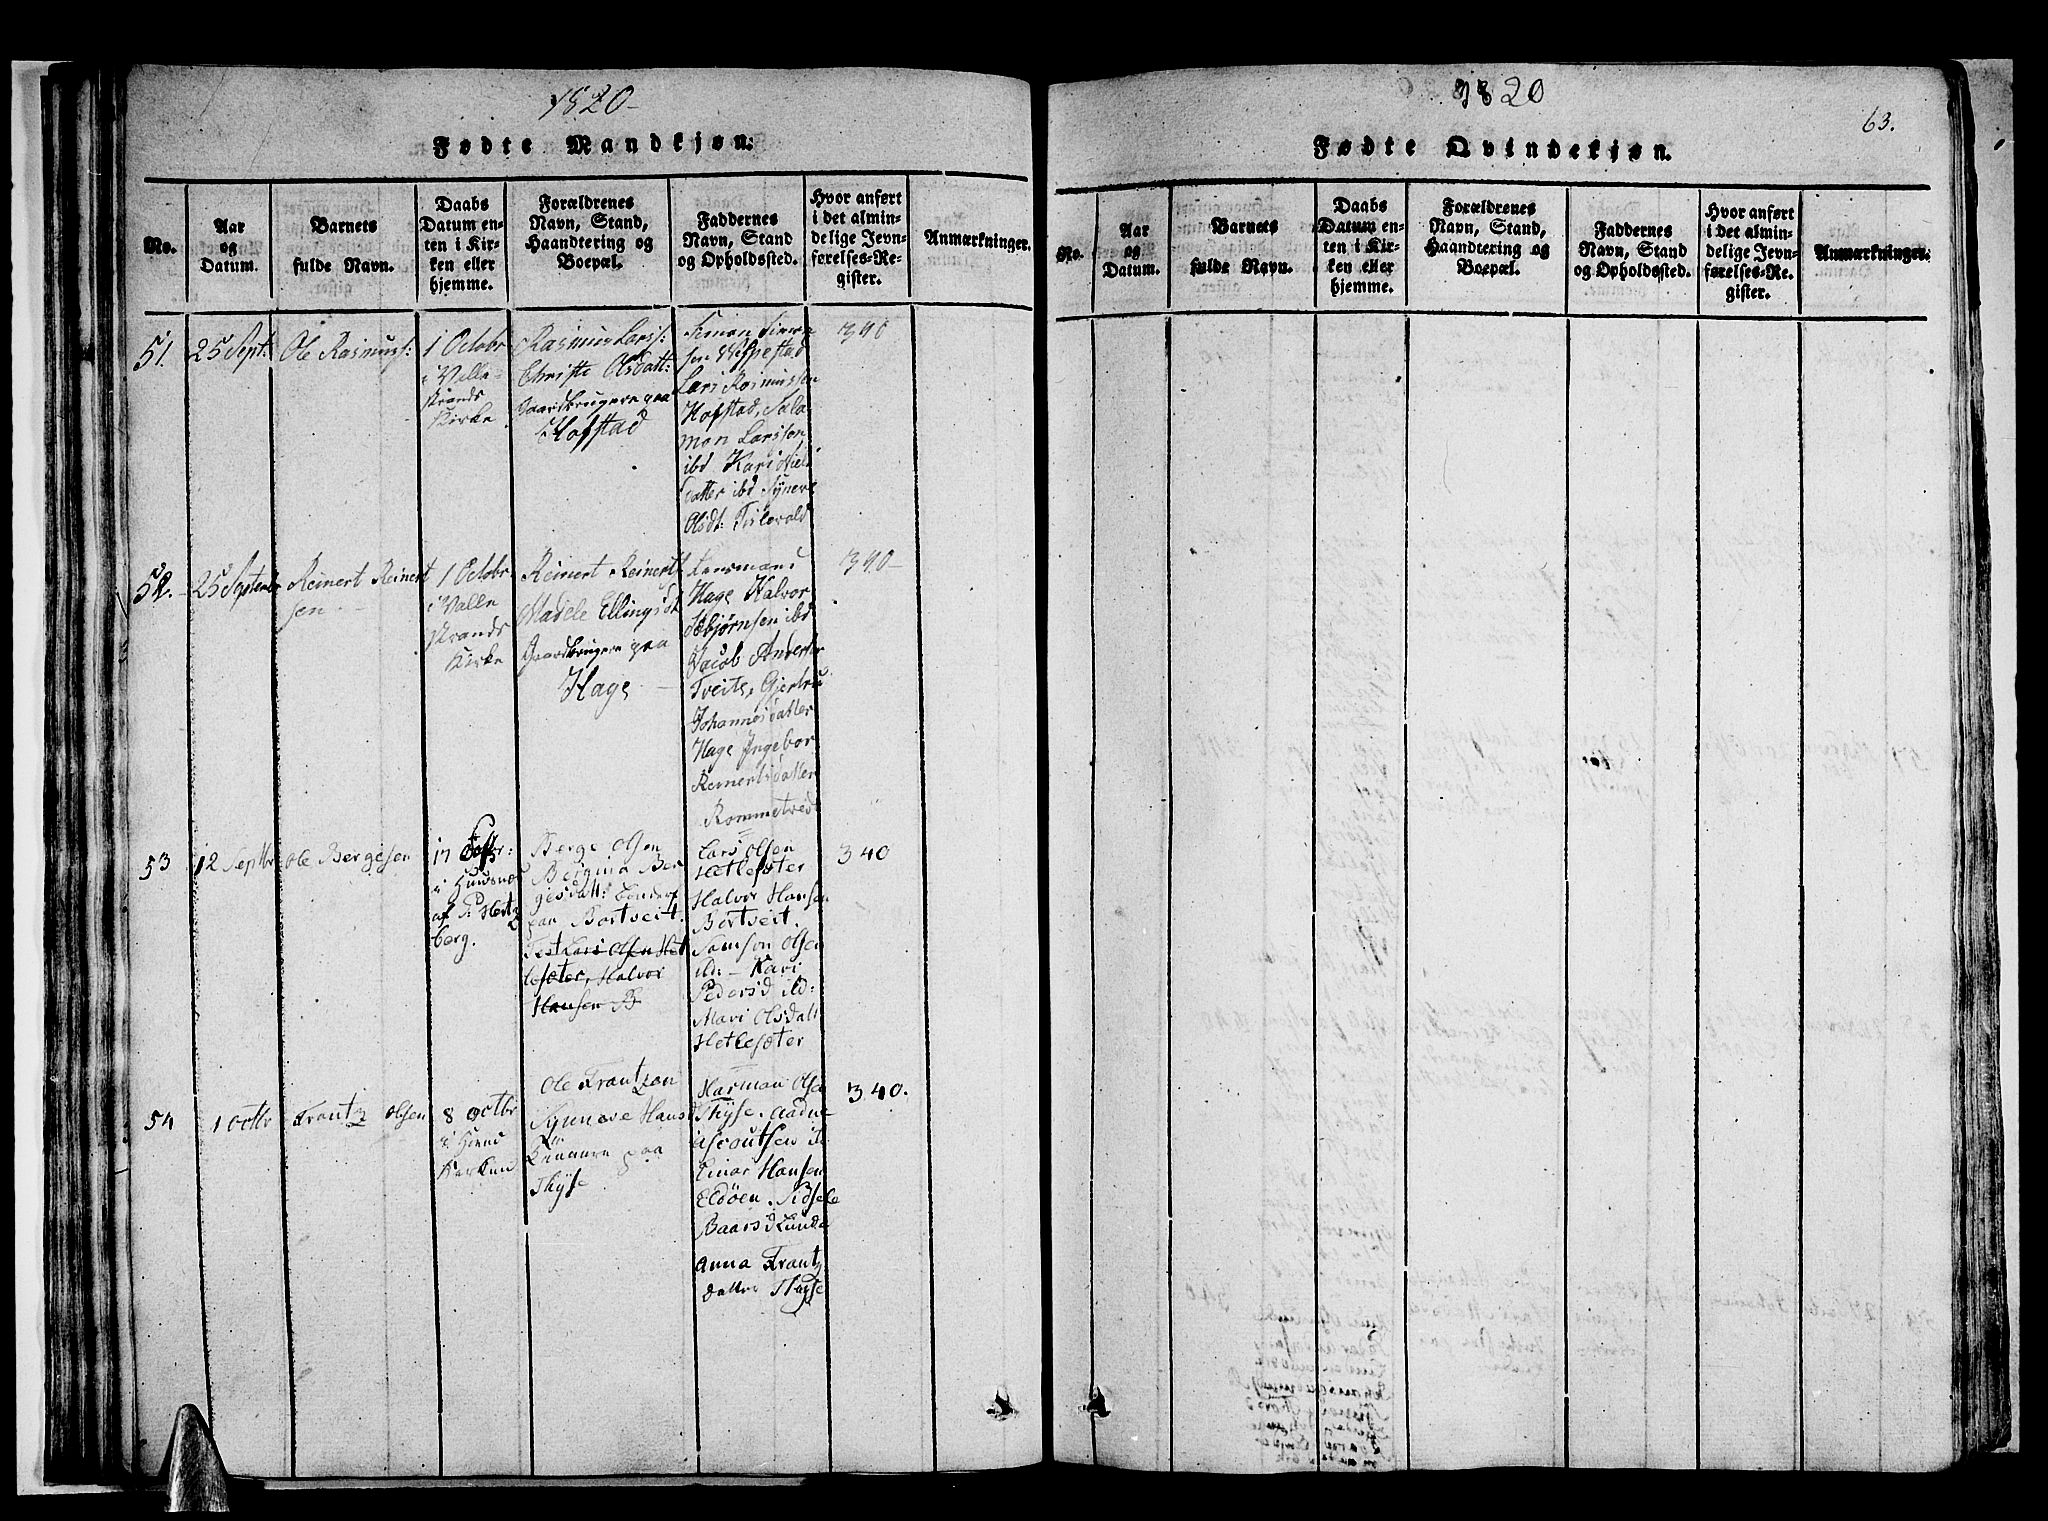 1820
Fødte Mandkjøn.
No.
Aar
og
Datum.
Barnets
fulde Navn.
Daabs
Datum en-
ten i Kir-
ken eller
hjemme.
Forældrenes
Navn, Stand,
Haandtering og
Boepæl.
Faddernes
Navn, Stand
og Opholdssted.
Hvor anført
i det almin-
delige Jevn-
førelses-Re-
gister.
Anmærkninger.
51.
25 Sept:
Ole Rasmuss:
1 Octobr
i Valle-
strands
Kirke
Rasmus Larss:
Christi Olsdatt:
Gaardbrugere paa
Hofstad
Simon Simon
sen
Lars Rasmussen
Hofstad, Salo-
mon Larssen
ibd Kari Niels
datter ibd Syneve
Olsdt:
340
52.
25 September
Reinert Reinert
sen.
1 Octobr.
i Valle
strands
Kirke
Reinert Reinerts
Madele Ellingsdt
Gaardbrugere paa
Hage
Lensmand
Hage Halvor
Asbjørnsen ibd
Jacob Anderss
Tveite, Gjertru
Johannesdatter
Hage Ingebor
Reinertsdatter
Rommetved
340
53
12 Septbr
Ole Bergesen
17
i
af P: Hertz
berg.
Berge Olsen
Bergina Ber
gesdatt:
paa Bortveit.
Test Lars Olsen Het
lesæter, Halvor
Hansen B
Lars Olsen
Hetlesæter
Halvor Hansen
Bortveit.
Samson Olsen
ibd: Kari
Pedersd ibd:
Mari Olsdatt
Hetlesæter
340
54
1 Octbr
Frantz Olsen
8 Octbr
i
Kirken
Ole Frantzen
Synneve Hansd
paa
Thyse
Harman Olsen
Thyse. Aadne
ibd
Einar Hansen
Eldøen. Sidsele
Baarsd Lunde
Anna Frantz
datter Thyse
340.
1820
63.
Fødte Qvindekjøn.
No.
Aar
og
Datum.
Barnets
fulde Navn.
Daabs
Datum en-
ten i Kir-
ken eller
hjemme.
Forældrenes
Navn, Stand,
Haandtering og
Boepæl.
Faddernes
Navn, Stand
og Opholdssted.
Hvor anført
i det almin-
delige Jevn-
førelses-Re-
gister.
Anmærkninger.